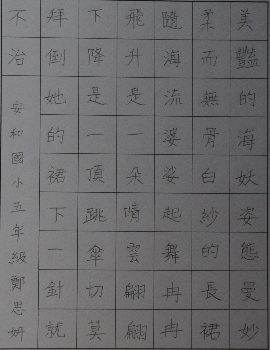 美豔的海妖姿態曼妙
柔而無骨白紗的長裙
隨海流婆娑起舞冉冉
飛升是一朵晴雲翩翩
下降是一頂跳傘切莫
拜倒她的裙下一針就
不治
安和國小五年級鄭思妍